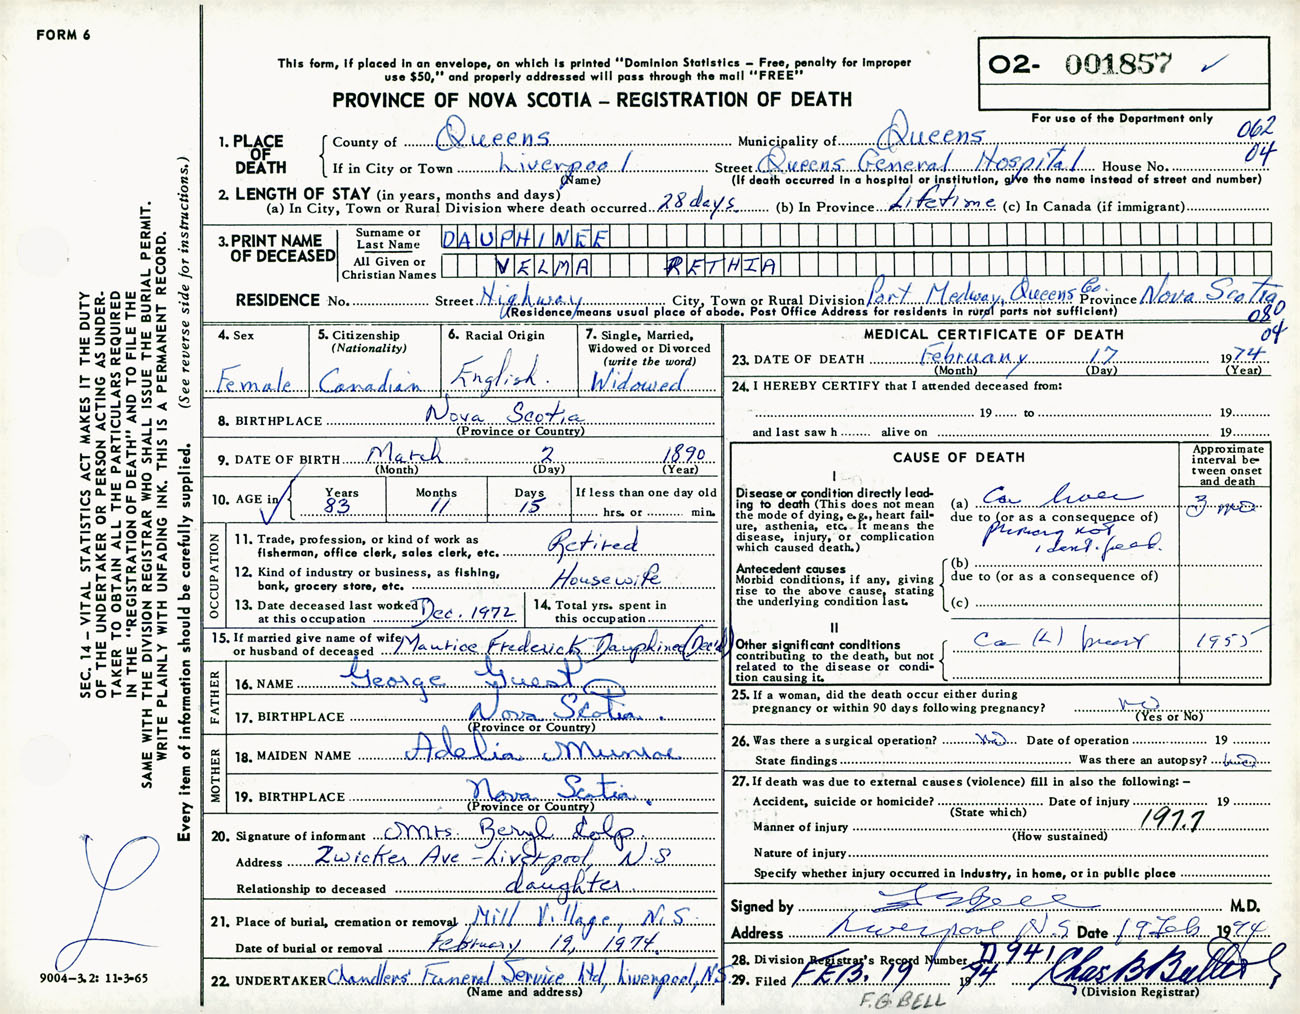 FORM 6
This form, if placed in an envelope, on which is printed "Dominion Statistics – Free, penalty for improper
use $50," and properly addressed will pass through the mail "FREE"
PROVINCE OF NOVA SCOTIA – REGISTRATION OF DEATH
02- 001857 ✓
For use of the Department only
062
04
1. PLACE OF DEATH County of Queens Municipality of Queens
If in City or Town Liverpool Street Queens General Hospital House No.
(Name) (If death occurred in a hospital or institution, give the name instead of street and number)
2. LENGTH OF STAY (in years, months and days)
(a) In City, Town or Rural Division where death occurred 28 days (b) In Province Lifetime (c) In Canada (if immigrant)
3. PRINT NAME OF DECEASED Surname or Last Name DAUPHINEE
All Given or Christian Names VELMA RETHIA
RESIDENCE No. Street Highway City, Town or Rural Division Port Medway, Queens Co. Province Nova Scotia
(Residence means usual place of abode. Post Office Address for residents in rural parts not sufficient)
080
04
4. Sex Female
5. Citizenship (Nationality) Canadian
6. Racial Origin English.
7. Single, Married, Widowed or Divorced (write the word) Widowed
8. BIRTHPLACE Nova Scotia
(Province or Country)
9. DATE OF BIRTH March 2 1890
(Month) (Day) (Year)
10. AGE in Years 83 Months 11 Days 15 If less than one day old
hrs. or min.
OCCUPATION
11. Trade, profession, or kind of work as fisherman, office clerk, sales clerk, etc. Retired
12. Kind of industry or business, as fishing, bank, grocery store, etc. Housewife
13. Date deceased last worked at this occupation Dec. 1972
14. Total yrs. spent in this occupation
15. If married give name of wife or husband of deceased Maurice Frederick Dauphinee (Dec'd)
FATHER
16. NAME George Guest
17. BIRTHPLACE Nova Scotia.
(Province or Country)
MOTHER
18. MAIDEN NAME Adelia Munroe
19. BIRTHPLACE Nova Scotia.
(Province or Country)
20. Signature of informant Mrs Beryl Colp
Address Zwicker Ave – Liverpool, N.S
Relationship to deceased daughter
21. Place of burial, cremation or removal Mill Village, N.S
Date of burial or removal February 19, 1974
22. UNDERTAKER Chandlers' Funeral Service Ltd, Liverpool, N.S.
(Name and address)
MEDICAL CERTIFICATE OF DEATH
23. DATE OF DEATH February 17 1974
(Month) (Day) (Year)
24. I HEREBY CERTIFY that I attended deceased from:
19 to 19
and last saw h alive on 19
CAUSE OF DEATH
Approximate interval between onset and death
I
Disease or condition directly leading to death (This does not mean the mode of dying, e.g., heart failure, asthenia, etc. It means the disease, injury, or complication which caused death.)
(a) Ca liver 3 mo
due to (or as a consequence of)
primary not
identified.
Antecedent causes
Morbid conditions, if any, giving rise to the above cause, stating the underlying condition last.
(b)
due to (or as a consequence of)
(c)
II
Other significant conditions contributing to the death, but not related to the disease or condition causing it.
Ca (L) breast 1955
25. If a woman, did the death occur either during
pregnancy or within 90 days following pregnancy? no
(Yes or No)
26. Was there a surgical operation? no Date of operation 19
State findings Was there an autopsy? no
27. If death was due to external causes (violence) fill in also the following: –
Accident, suicide or homicide? Date of injury 19
(State which)
Manner of injury 197.7
(How sustained)
Nature of injury
Specify whether injury occurred in industry, in home, or in public place
Signed by M.D.
Address Liverpool N.S Date 19 Feb 1974
28. Division Registrar's Record Number D 941
29. Filed FEB. 19 1974 Chas B Butler
(Division Registrar)
F.G. BELL
SEC. 14 – VITAL STATISTICS ACT MAKES IT THE DUTY
OF THE UNDERTAKER OR PERSON ACTING AS UNDER-
TAKER TO OBTAIN ALL THE PARTICULARS REQUIRED
IN THE "REGISTRATION OF DEATH" AND TO FILE THE
SAME WITH THE DIVISION REGISTRAR WHO SHALL ISSUE THE BURIAL PERMIT.
WRITE PLAINLY WITH UNFADING INK. THIS IS A PERMANENT RECORD.
Every item of information should be carefully supplied. (See reverse side for instructions.)
9004–3.2: 11-3-65